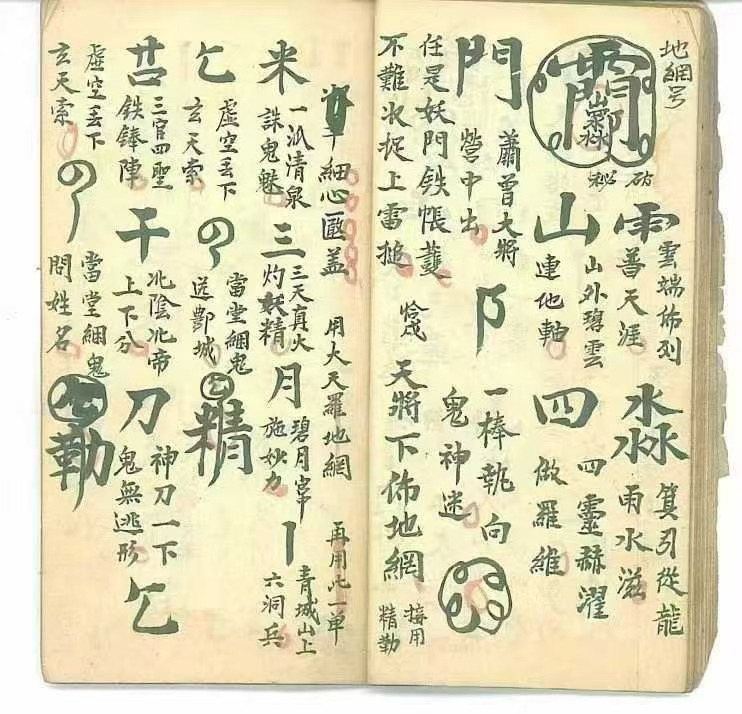 地網号
破秘
雨 雲端佈列普天涯
淼淼 箕引從龍雨水滋
山 山外碧雲連地軸
四 四靈赫濯做羅維
門 蕭曾大將營中出
阝 一棒執向鬼神迷
任是妖門鉄帳
不難氷捉上雷搥
天將下佈地網
接用精勤
細心匭盖
用大天羅地網
再用此一单
米 一派清泉誅鬼魅
三 三天真火灼妖精
月 碧月 施妙力
丨 青城山上六洞兵
虛空丢下玄天索
當堂綑鬼送酆城
精
三官四聖鉄鋒陣
干 北陰北帝上下分
刀 神刀一下鬼無逃形
虛空丢下玄天索
當堂綑鬼問姓名
勤